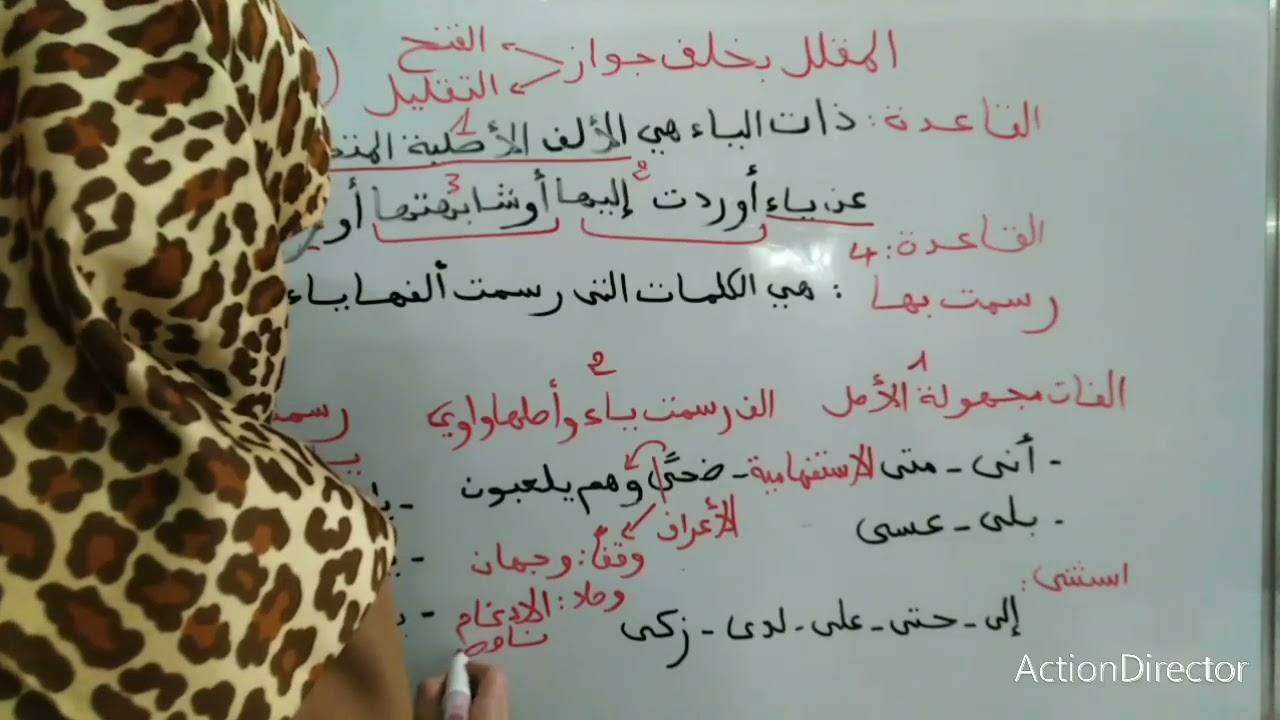 المقلل بخلف جواز الفتح
التقليل
القاعدة: ذات الياء هي الألف الأصلية
عن ياء أو ردت إليها أو شابهتها أو
1 2 3
القاعدة: 4
رسمت بها : هي الكلمات التى رسمت ألفها ياء
1 2
الفات مجهولة الأصل الف رسمت ياء وأصلها واوي رسمت
- أنى - متى الاستفهامية - ضحىً وهم يلعبون
الأعراف
- بلى - عسى
وقفا: وجهان
استثنى:
إلى - حتى - على - لدى - زكى
وصلا: الادغام
ActionDirector